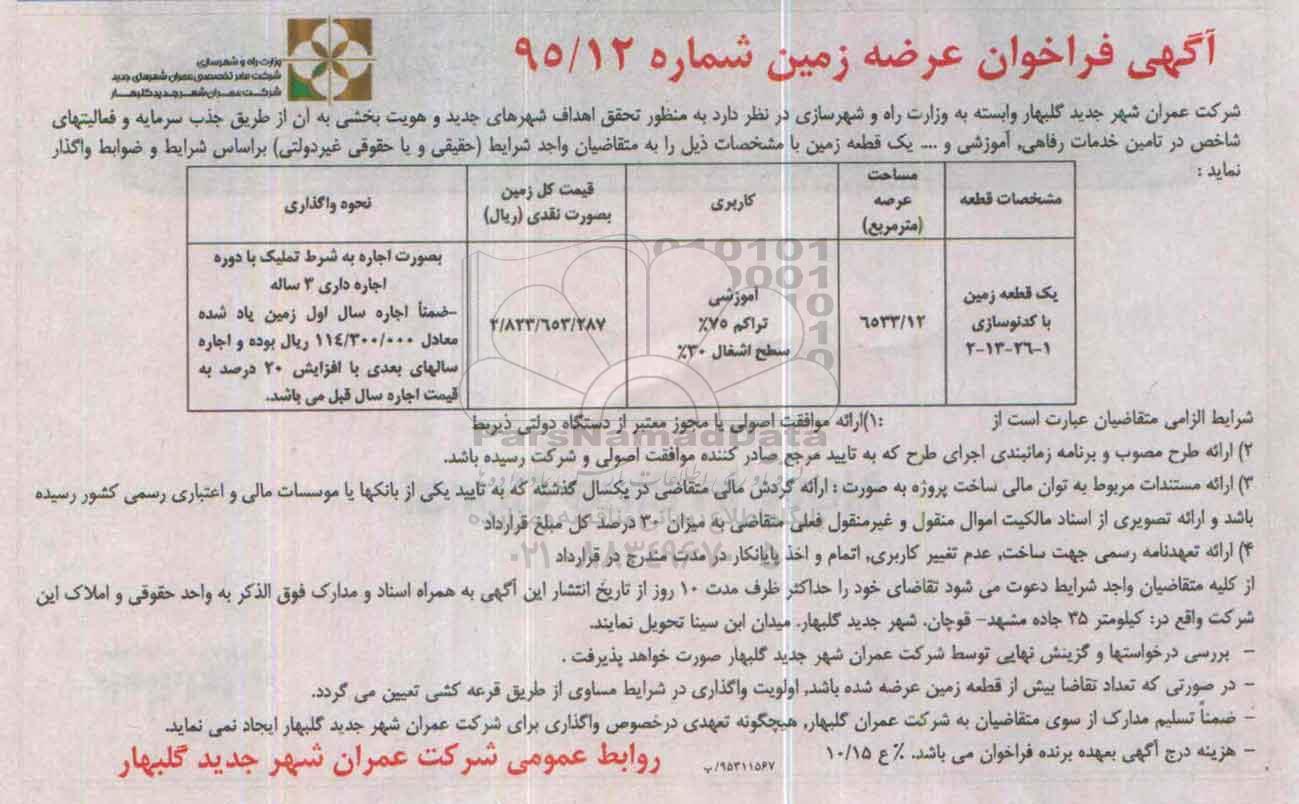 آگهی فراخوان عرضه زمین شماره ۹۵/۱۲
وزارت راه و شهرسازی
شرکت مادر تخصصی عمران شهرهای جدید
شرکت عمران شهر جدید گلبهار
شرکت عمران شهر جدید گلبهار وابسته به وزارت راه و شهرسازی در نظر دارد به منظور تحقق اهداف شهرهای جدید و هویت بخشی به آن از طریق جذب سرمایه و فعالیتهای
شاخص در تامین خدمات رفاهی, آموزشی و .... یک قطعه زمین با مشخصات ذیل را به متقاضیان واجد شرایط (حقیقی و یا حقوقی غیردولتی) براساس شرایط و ضوابط واگذار
نماید :
مشخصات قطعه
مساحت
عرصه
(مترمربع)
کاربری
قیمت کل زمین
بصورت نقدی (ریال)
نحوه واگذاری
یک قطعه زمین
با کدنوسازی
۲-۱۳-۲۶-۱
۶۵۳۳/۱۲
آموزشی
تراکم ۷۵٪
سطح اشغال ۳۰٪
۲/۸۲۳/۶۵۳/۲۸۷
بصورت اجاره به شرط تملیک با دوره
اجاره داری ۳ ساله
-ضمناً اجاره سال اول زمین یاد شده
معادل ۱۱٤/۳۰۰/۰۰۰ ریال بوده و اجاره
سالهای بعدی با افزایش ۲۰ درصد به
قیمت اجاره سال قبل می باشد.
شرایط الزامی متقاضیان عبارت است از :۱)ارائه موافقت اصولی یا مجوز معتبر از دستگاه دولتی ذیربط
۲) ارائه طرح مصوب و برنامه زمانبندی اجرای طرح که به تایید مرجع صادر کننده موافقت اصولی و شرکت رسیده باشد.
۳) ارائه مستندات مربوط به توان مالی ساخت پروژه به صورت : ارائه گردش مالی متقاضی در یکسال گذشته که به تایید یکی از بانکها یا موسسات مالی و اعتباری رسمی کشور رسیده
باشد و ارائه تصویری از اسناد مالکیت اموال منقول و غیرمنقول فعلی متقاضی به میزان ۳۰ درصد کل مبلغ قرارداد
۴) ارائه تعهدنامه رسمی جهت ساخت, عدم تغییر کاربری, اتمام و اخذ پایانکار در مدت مندرج در قرارداد
از کلیه متقاضیان واجد شرایط دعوت می شود تقاضای خود را حداکثر ظرف مدت ۱۰ روز از تاریخ انتشار این آگهی به همراه اسناد و مدارک فوق الذکر به واحد حقوقی و املاک این
شرکت واقع در: کیلومتر ۳۵ جاده مشهد- قوچان, شهر جدید گلبهار, میدان ابن سینا تحویل نمایند.
- بررسی درخواستها و گزینش نهایی توسط شرکت عمران شهر جدید گلبهار صورت خواهد پذیرفت .
- در صورتی که تعداد تقاضا بیش از قطعه زمین عرضه شده باشد, اولویت واگذاری در شرایط مساوی از طریق قرعه کشی تعیین می گردد.
- ضمناً تسلیم مدارک از سوی متقاضیان به شرکت عمران گلبهار, هیچگونه تعهدی درخصوص واگذاری برای شرکت عمران شهر جدید گلبهار ایجاد نمی نماید.
- هزینه درج آگهی بعهده برنده فراخوان می باشد. ٪ع ۱۰/۱۵
۹۵۳۱۱۵۶۷/پ
روابط عمومی شرکت عمران شهر جدید گلبهار
ParsNamadData
۰۲۱-۸۸۳۴۹۶۷۰